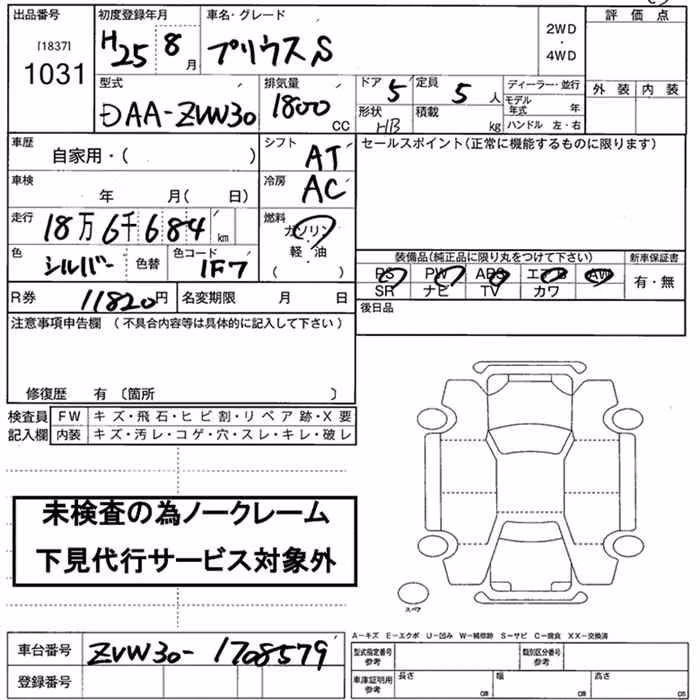 出品番号 初度登録年月 車名・グレード 評価点
[1837] 1031 H25 8月 プリウス S 2WD・4WD
外装 内装
型式 排気量 ドア 5 定員 5人 ディーラー・並行
DAA-ZVW30 1800CC 形状 HB 積載 kg モデル年式 年
ハンドル 左・右
車歴 自家用・( ) シフト AT セールスポイント(正常に機能するものに限ります)
車検 年 月( 日) 冷房 AC
走行 18万6千684km 燃料 ガソリン・軽・油( )
色 シルバー 色替 色コード 1F7
装備品(純正品に限り丸をつけて下さい) 新車保証書
PS PW ABS エアB AW 有・無
SR ナビ TV カワ
R券 11820円 名変期限 月 日 後日品
注意事項申告欄 (不具合内容等は具体的に記入して下さい)
修復歴 有 〔箇所 〕
検査員 FW キズ・飛石・ヒビ割・リペア跡・X要
記入欄 内装 キズ・汚レ・コゲ・穴・スレ・キレ・破レ
未検査の為ノークレーム
下見代行サービス対象外
スペア
A-キズ E-エクボ U-凹み W-補修跡 S-サビ C-腐食 XX-交換済
車台番号 ZVW30-1708579 型式指定番号 参考 類別区分番号 参考
登録番号 車庫証明用 参考 長さ cm 幅 cm 高さ cm